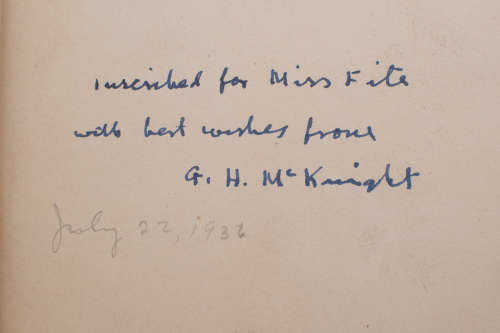 inscribed for Miss Fite
with best wishes from
G. H. McKnight
July 22, 1936